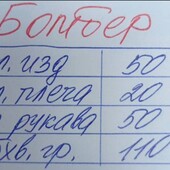 Бомбер
л. изд 50
л. плеча 20
рукава 50
хв. гр. 110